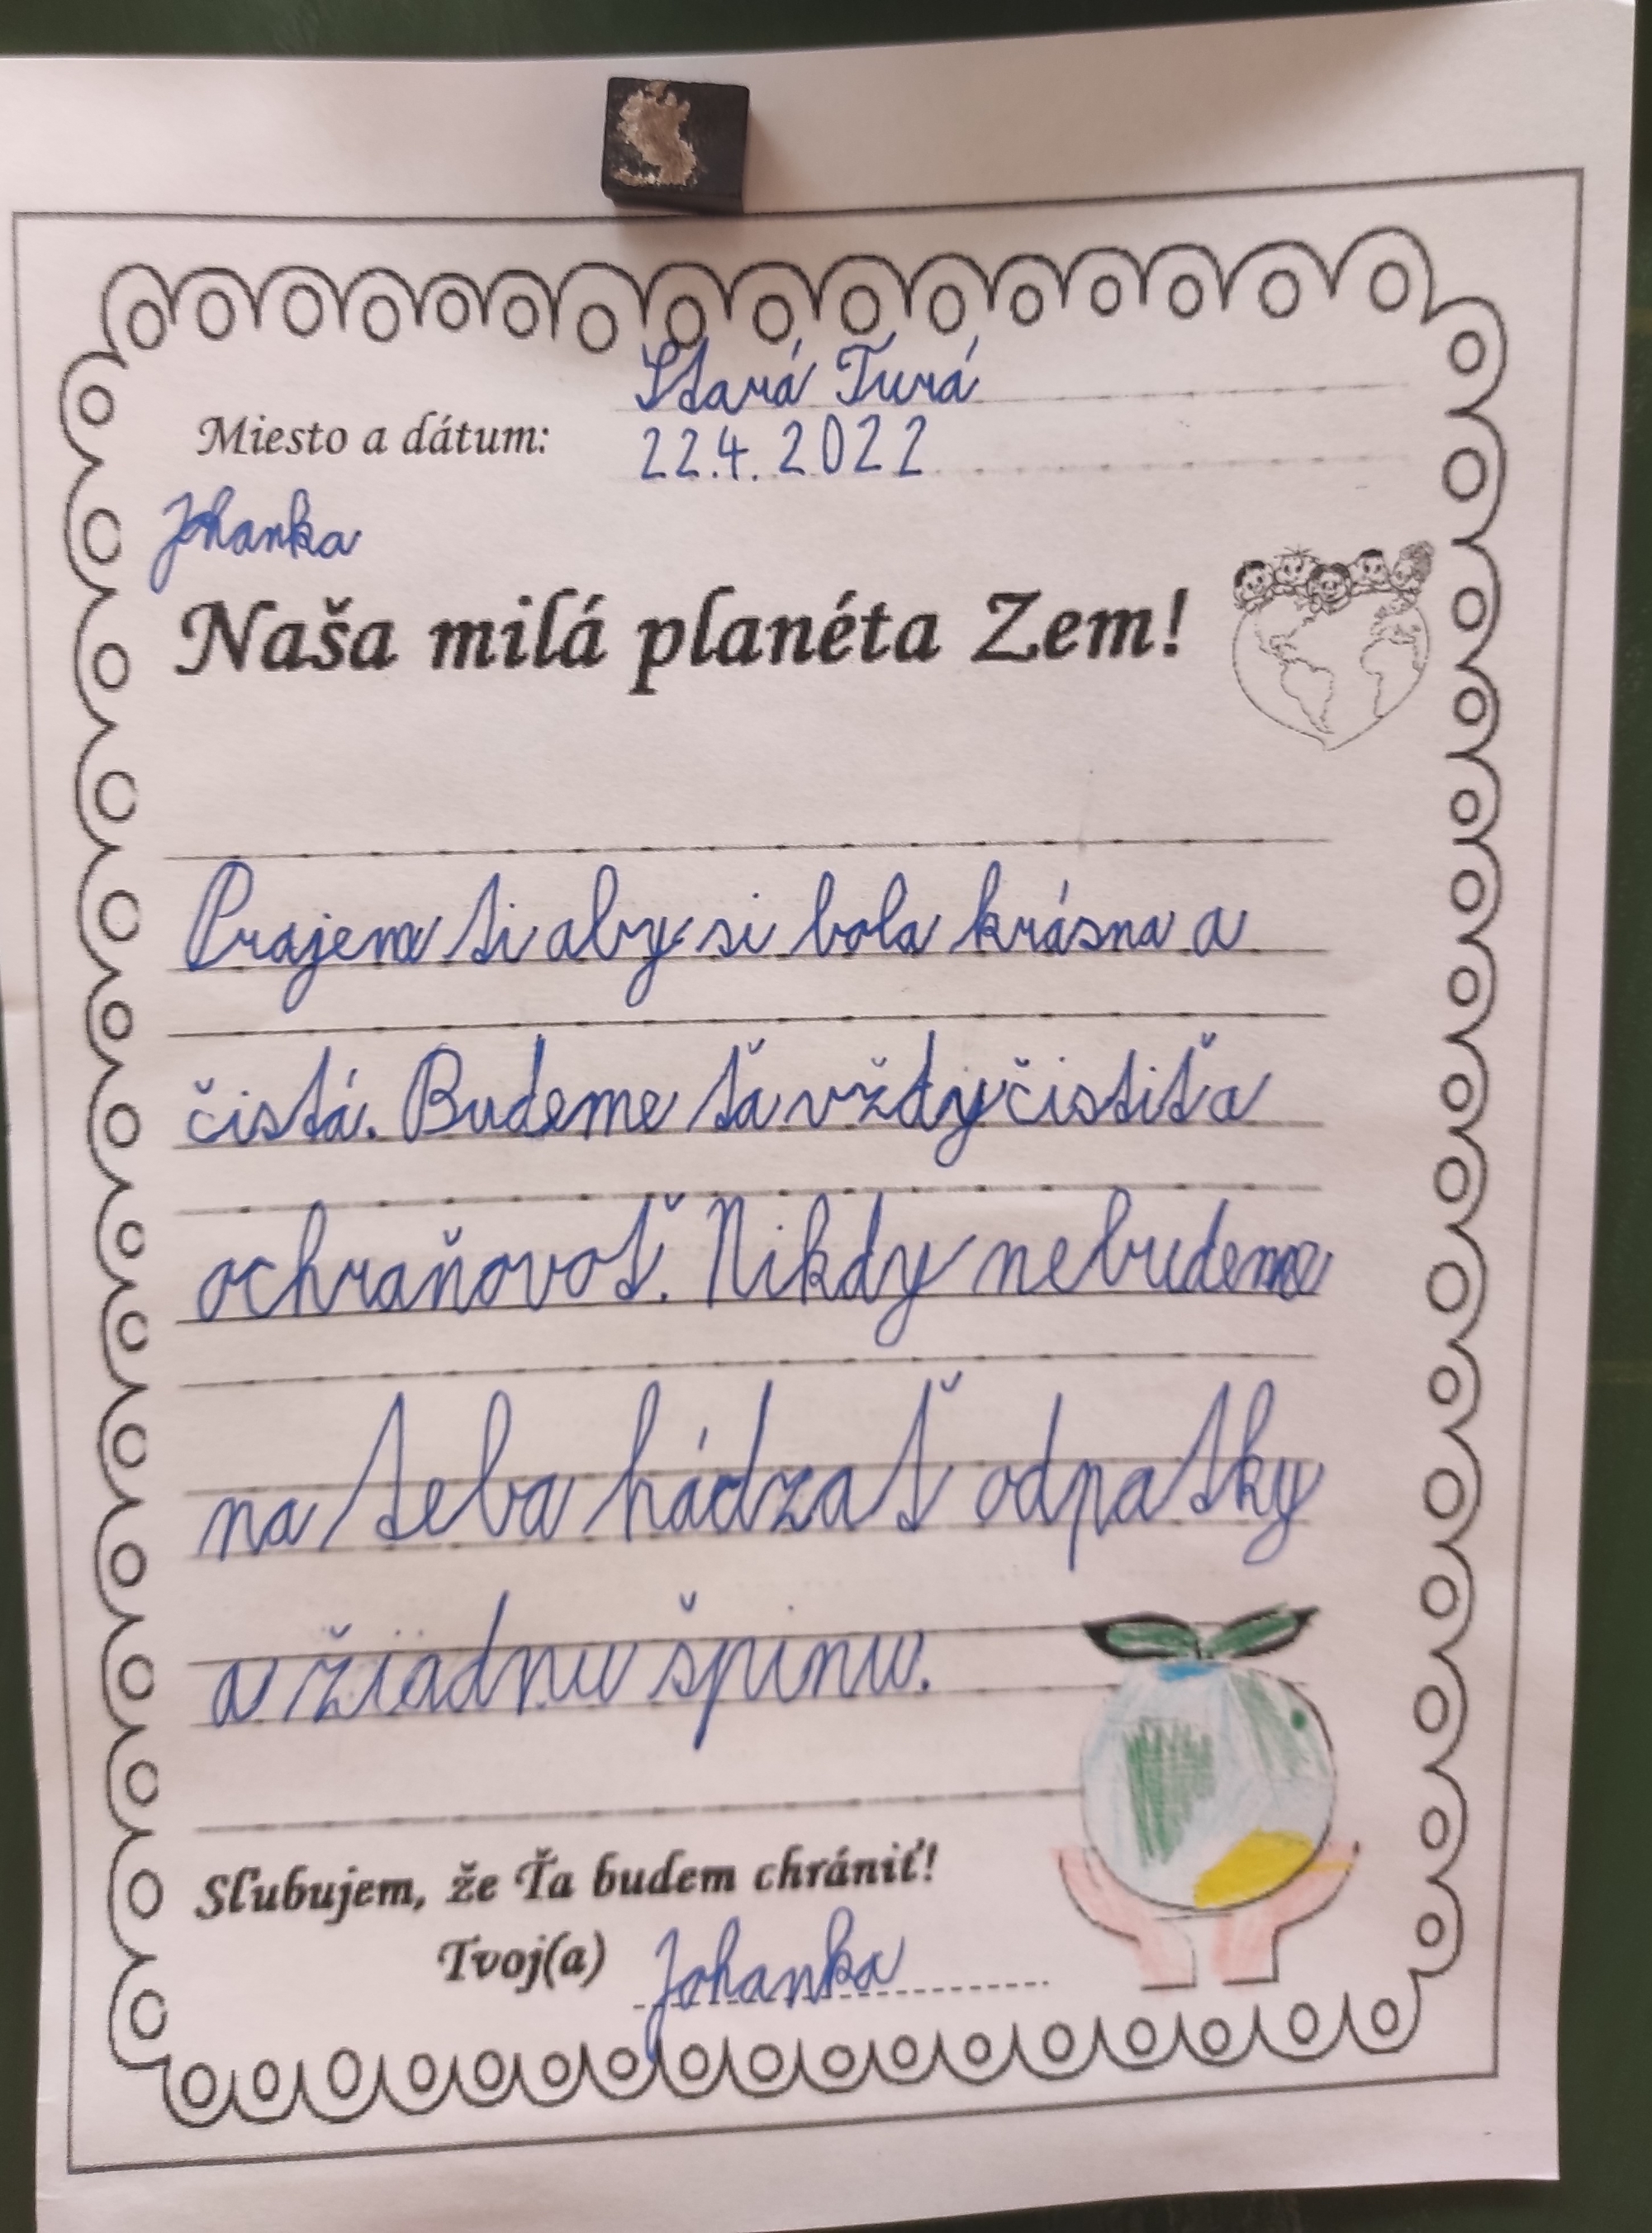 Stará Turá
Miesto a dátum:
22.4.2022
Johanka
Naša milá planéta Zem!
Prajeme ti aby si bola krásna a
čistá. Budeme ťa vždy čistiť a
ochraňovať. Nikdy nebudeme
na teba hádzať odpatky
a žiadnu špinu.
Sľubujem, že Ťa budem chrániť!
Tvoj(a) Johanka